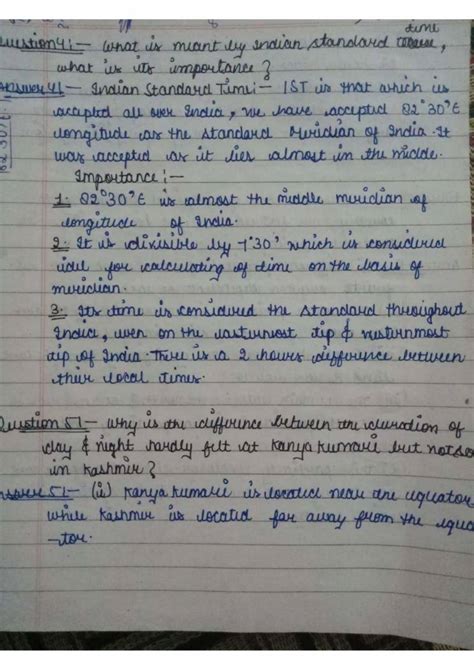 time
Question 4:- What is meant by Indian Standard
what is its importance?
Answer 4:- Indian Standard Time:- IST is that which is
accepted all over India, we have accepted 82°30'E
longitude as the standard Meridian of India. It
was accepted as it lies almost in the middle.
Importance:-
1. 82°30'E is almost the middle meridian of
longitude of India.
2. It is divisible by 7°30' which is considered
ideal for calculating of time on the basis of
meridian.
3. Its time is considered the standard throughout
India, even on the easternmost tip & westernmost
tip of India. There is a 2 hours difference between
their local times.
Question 5:- Why is the difference between the duration of
day & night hardly felt at Kanyakumari but not so
in Kashmir?
Answer 5:- (i) Kanyakumari is located near the equator
while Kashmir is located far away from the equa
-tor.
82°30'E